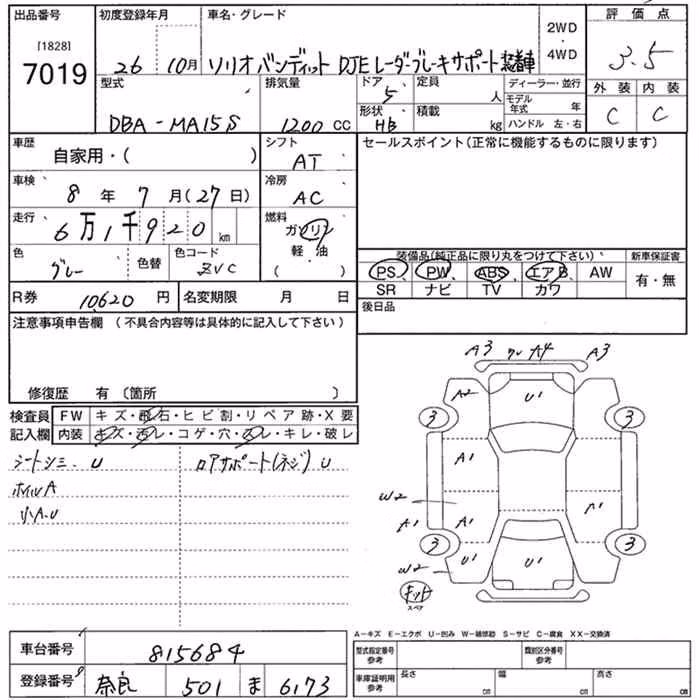 出品番号 初度登録年月 車名・グレード 評価点
[1828]
7019
26 10月 ソリオバンディット DJEレーダーブレーキサポート装着車
2WD
・
4WD
3.5
型式 排気量 ドア 定員 ディーラー・並行 外装 内装
5 人 モデル年式 年
DBA-MA15S 1200cc 形状 積載 C C
HB kg ハンドル 左・右
車歴 シフト セールスポイント(正常に機能するものに限ります)
自家用・( ) AT
車検 冷房
8年7月(27日) AC
走行 燃料
6万1千920km ガソリン
軽・油
( )
色 色替 色コード
グレー ZVC
装備品(純正品に限り丸をつけて下さい) 新車保証書
PS PW ABS エアB AW 有・無
SR ナビ TV カワ
R券 10620円 名変期限 月 日 後日品
注意事項申告欄 (不具合内容等は具体的に記入して下さい)
修復歴 有 〔箇所 〕
検査員 FW キズ・飛石・ヒビ割・リペア跡・X要
記入欄 内装 キズ・汚レ・コゲ・穴・スレ・キレ・破レ
シートシミ、U ロアサポート(ネジ)U
ホイルA
小A.U
A3 A4 A3
A2 U1
3 3
A1
W2
A1 A1 A1
3 3
W2 U1 U1
キット
スペア
A-キズ E-エクボ U-凹み W-補修跡 S-サビ C-腐食 XX-交換済
車台番号 815684 型式指定番号 参考 類別区分番号 参考
登録番号 奈良 501 ま 6173 車庫証明用 参考 長さ cm 幅 cm 高さ cm